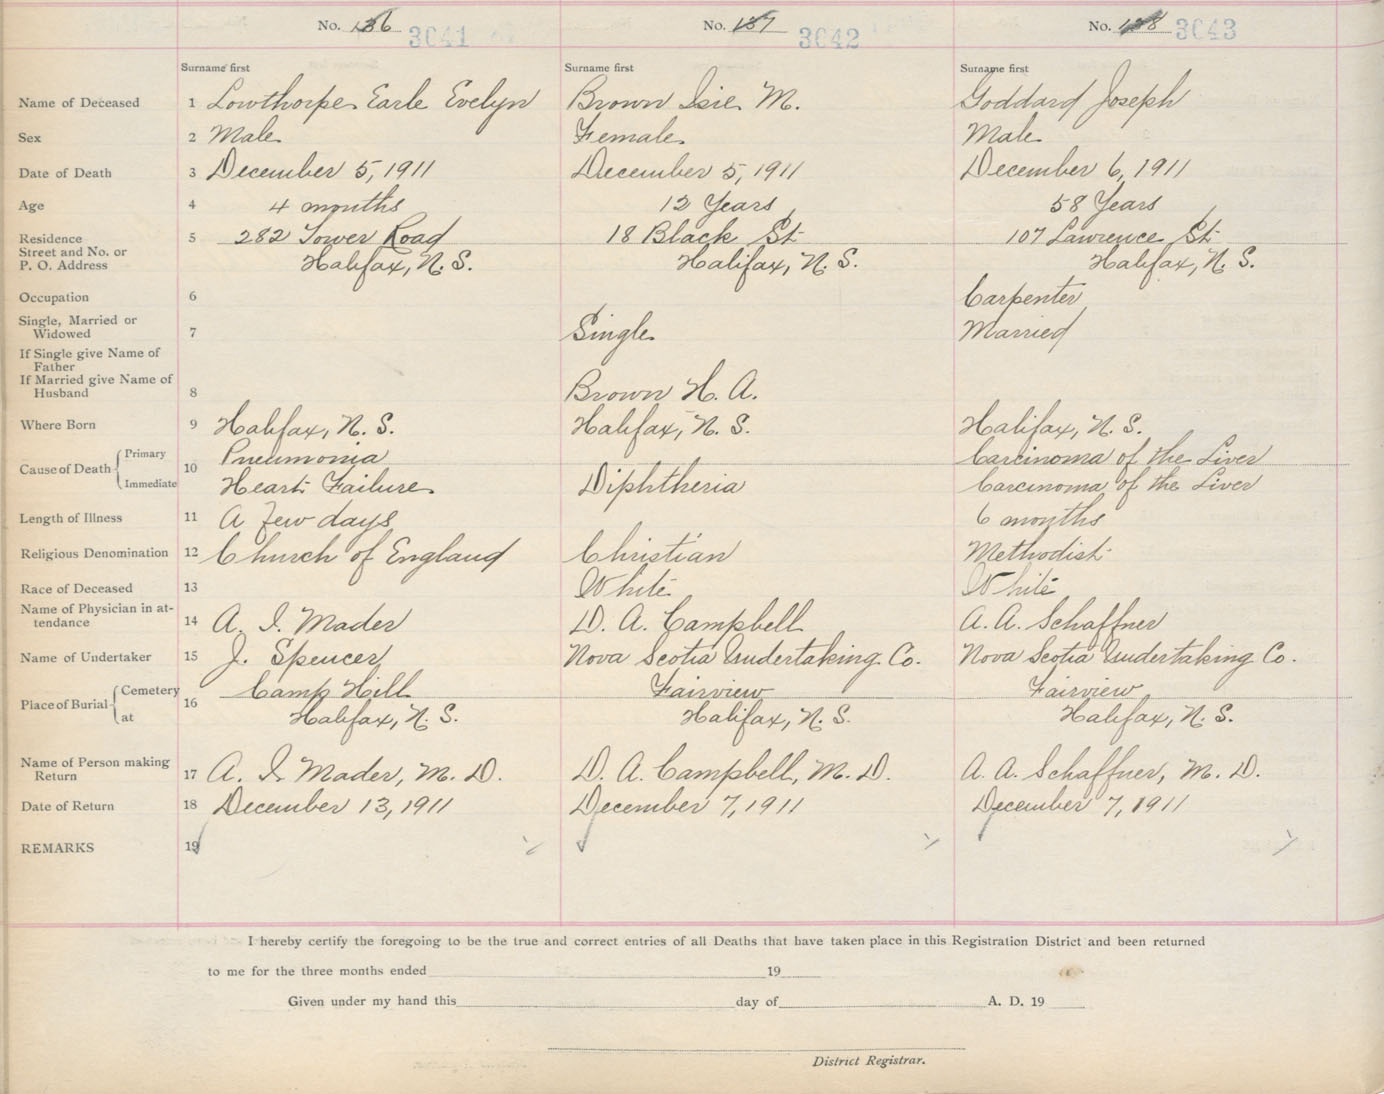 No. 136 3041 No. 137 3042 No. 138 3043
Surname first Surname first Surname first
Name of Deceased 1 Lowthorpe Earle Evelyn Brown Isie M. Goddard Joseph
Sex 2 Male Female Male
Date of Death 3 December 5, 1911 December 5, 1911 December 6, 1911
Age 4 4 months 12 Years 58 Years
Residence 5 282 Tower Road 18 Black St 107 Lawrence St
Street and No. or
P. O. Address Halifax, N. S. Halifax, N. S. Halifax, N. S.
Occupation 6 Carpenter
Single, Married or
Widowed 7 Single Married
If Single give Name of
Father
If Married give Name of
Husband 8 Brown H. A.
Where Born 9 Halifax, N. S. Halifax, N. S. Halifax, N. S.
Primary Pneumonia Carcinoma of the Liver
Cause of Death 10
Immediate Heart Failure Diphtheria Carcinoma of the Liver
Length of Illness 11 A few days 6 months
Religious Denomination 12 Church of England Christian Methodist
Race of Deceased 13 White White
Name of Physician in at-
tendance 14 A. I. Mader D. A. Campbell A. A. Schaffner
Name of Undertaker 15 J. Spencer Nova Scotia Undertaking Co. Nova Scotia Undertaking Co.
Cemetery Camp Hill Fairview Fairview
Place of Burial 16
at Halifax, N. S. Halifax, N. S. Halifax, N. S.
Name of Person making
Return 17 A. I. Mader, M. D. D. A. Campbell, M. D. A. A. Schaffner, M. D.
Date of Return 18 December 13, 1911 December 7, 1911 December 7, 1911
REMARKS 19
I hereby certify the foregoing to be the true and correct entries of all Deaths that have taken place in this Registration District and been returned
to me for the three months ended 19
Given under my hand this day of A. D. 19
District Registrar.